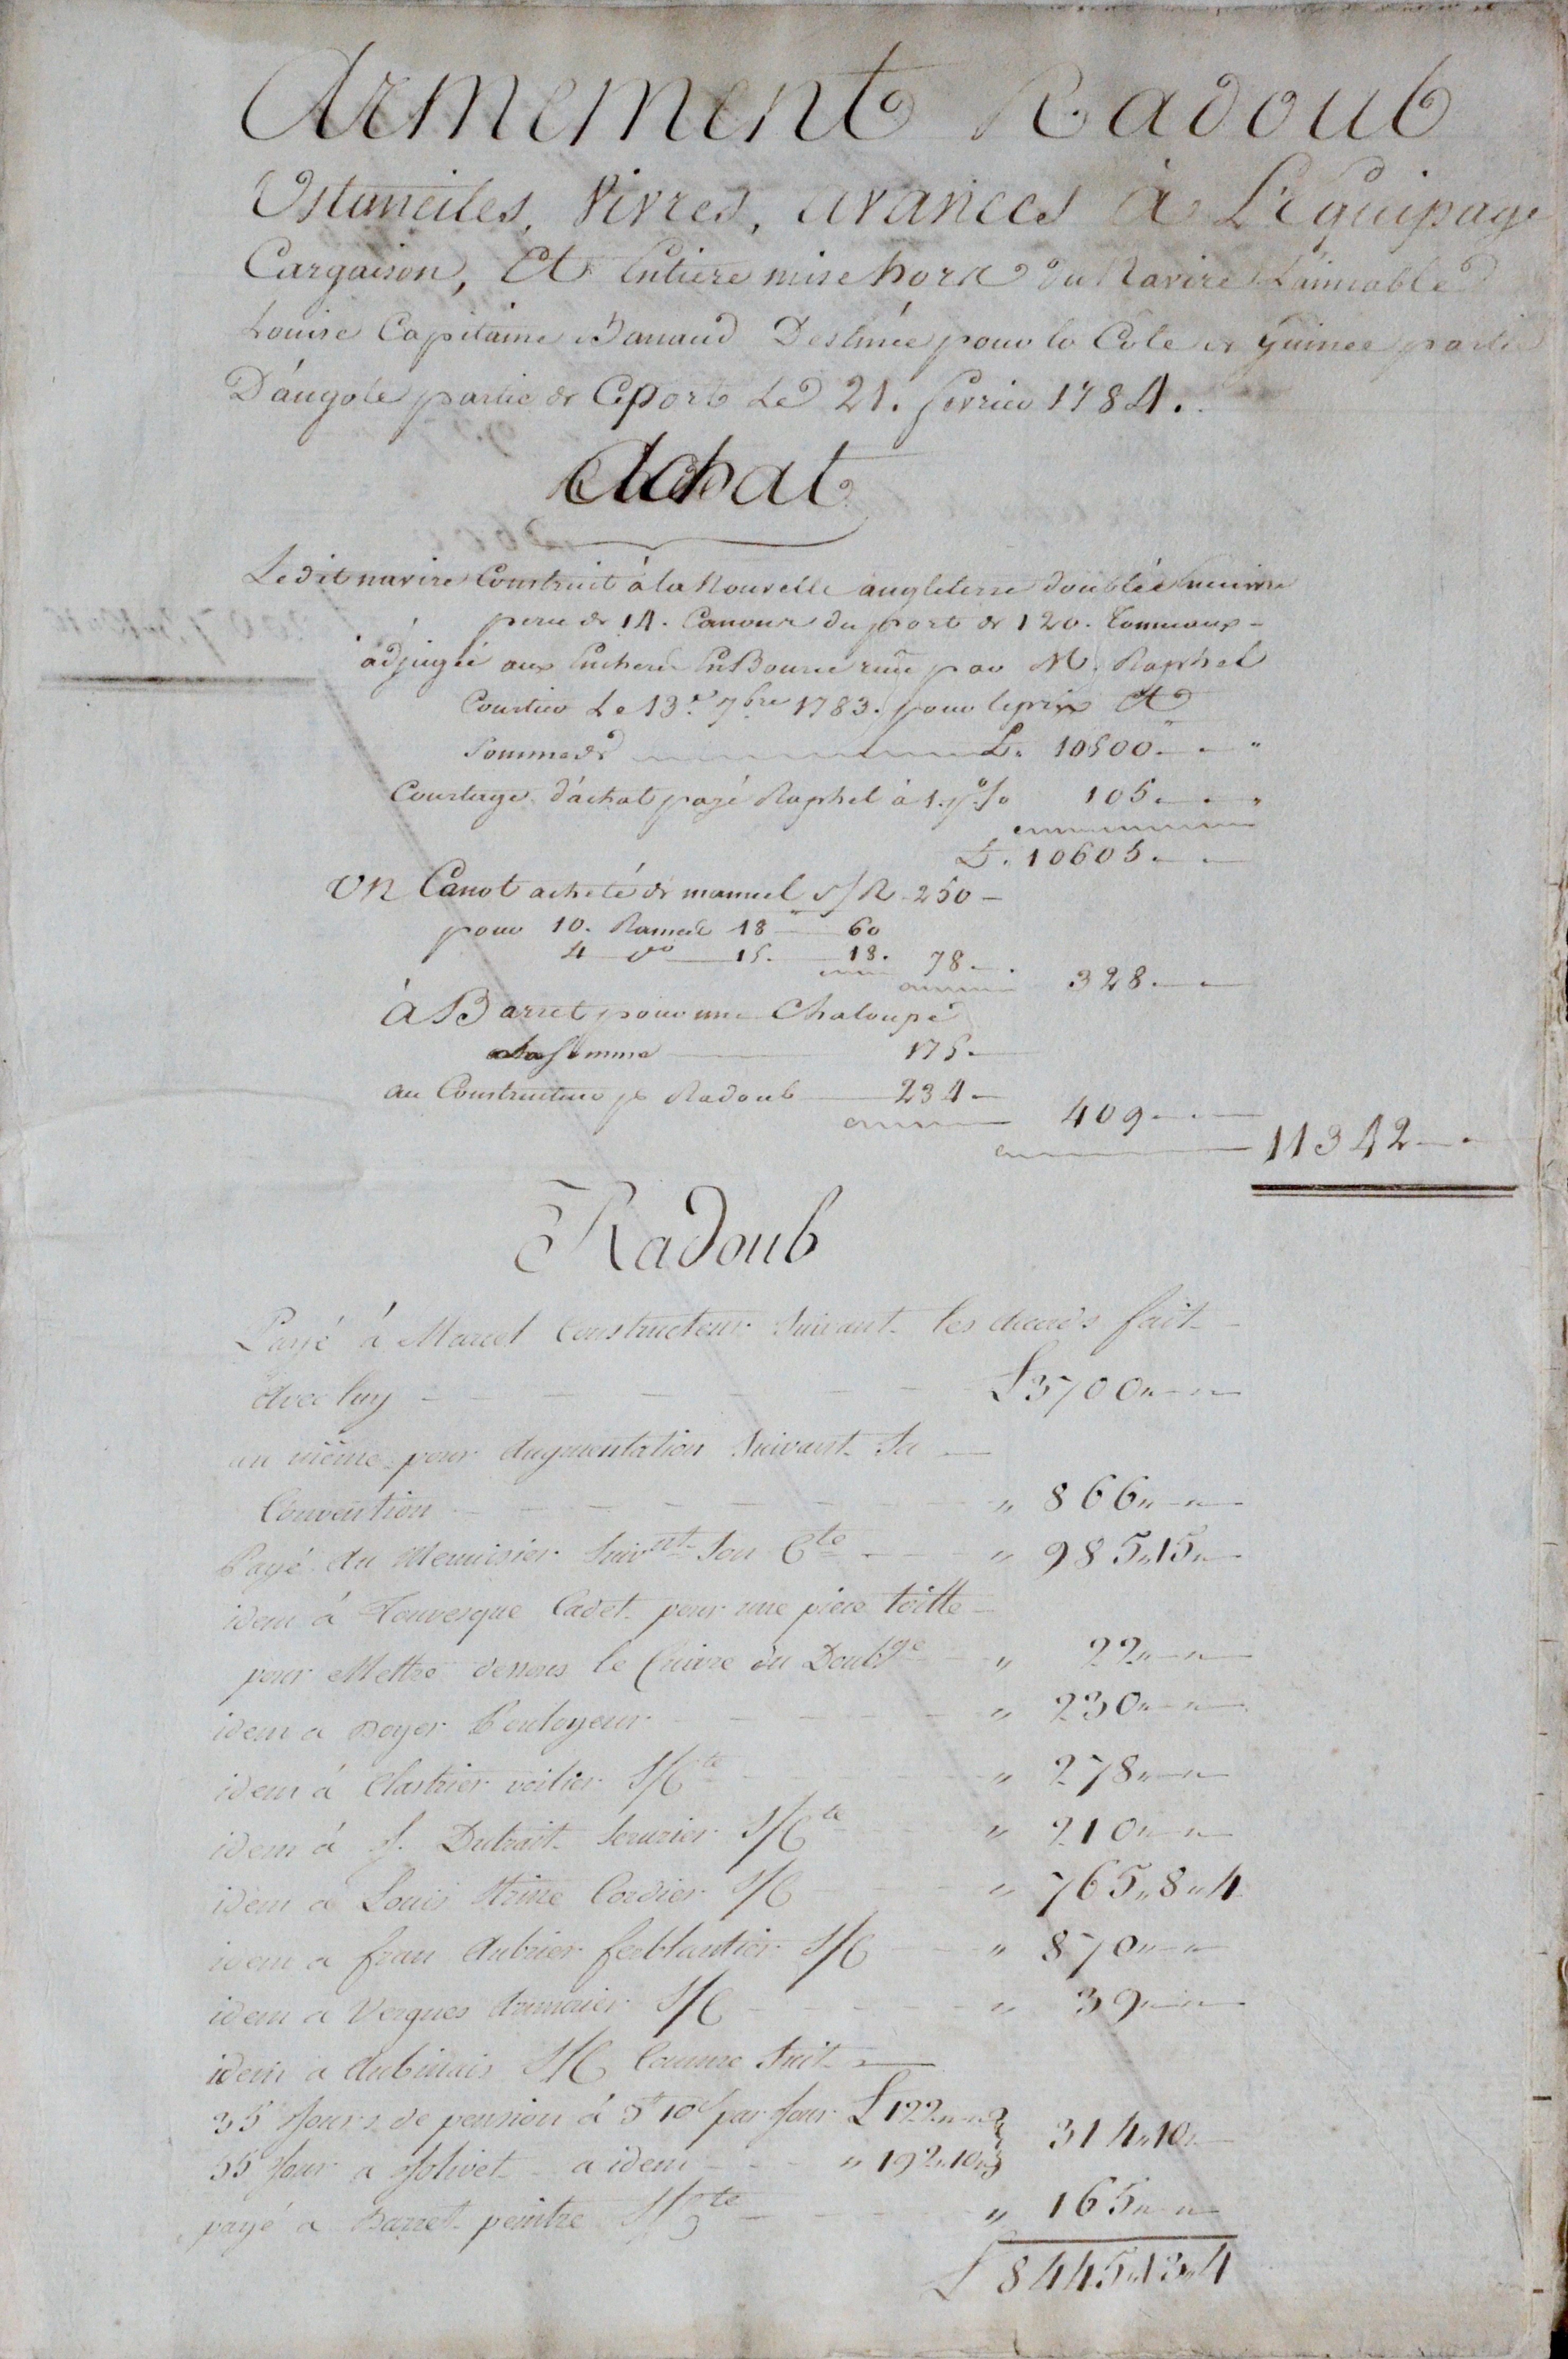 Armement Radoub
Ustanciles, Vivres, avances à L'Equipage
Cargaison, Et Entiere mise hors du Navire L'aimable
Louise Capitaine Banaud Destinée pour la Cote de Guinée partie
D'angole partie de Ce port Le 21. fevrier 1784.
Achat
Ledit navire Construit à la Nouvelle angleterre doublée
percé de 14. Canons du port de 120. Tonneaux
adjugée aux Encheres En Bource par M. Raphel
Courtier Le 13e. 7bre 1783. pour le prix Et
Somme de L. 10500
Courtage d'achat payé Raphel à 1. p% 105
L. 10605
Un Canot acheté de manuel s/R 250
pour 10. Rames de 18 60
4 do 15. 18. 78
328
à Barret pour une Chaloupe
la somme 175
au Constructeur pr Radoub 234
409
11342
Radoub
Payé à Marcel Constructeur Suivant les accords fait
avec luy L 3700
au même pour augmentation Suivant Sa
Convention 866
Payé au Menuisier Suivnt Son Cte 985,,15
idem à Touvesque Cadet pour une piece toille
pour Mettre dessous le Cuivre du Doublge 22
idem a Boyer Poulayeur 230
idem à Chartrier voilier S/Cte 278
idem à J. Dutrait Serurier S/Cte 210
idem a Louis Cordier S/C 765,,8,,4
idem a fran Aubrier ferblantier S/C 870
idem a Vergues Armurier S/C 39
idem a Aubinais S/C Comme Suit
35 Jours de pension à 3tt 10s par Jour L 122
55 Jour a Jolivet a idem 192,,10
314,,10
payé a Barret peintre S/Cte 165
L 8445,,13,,4